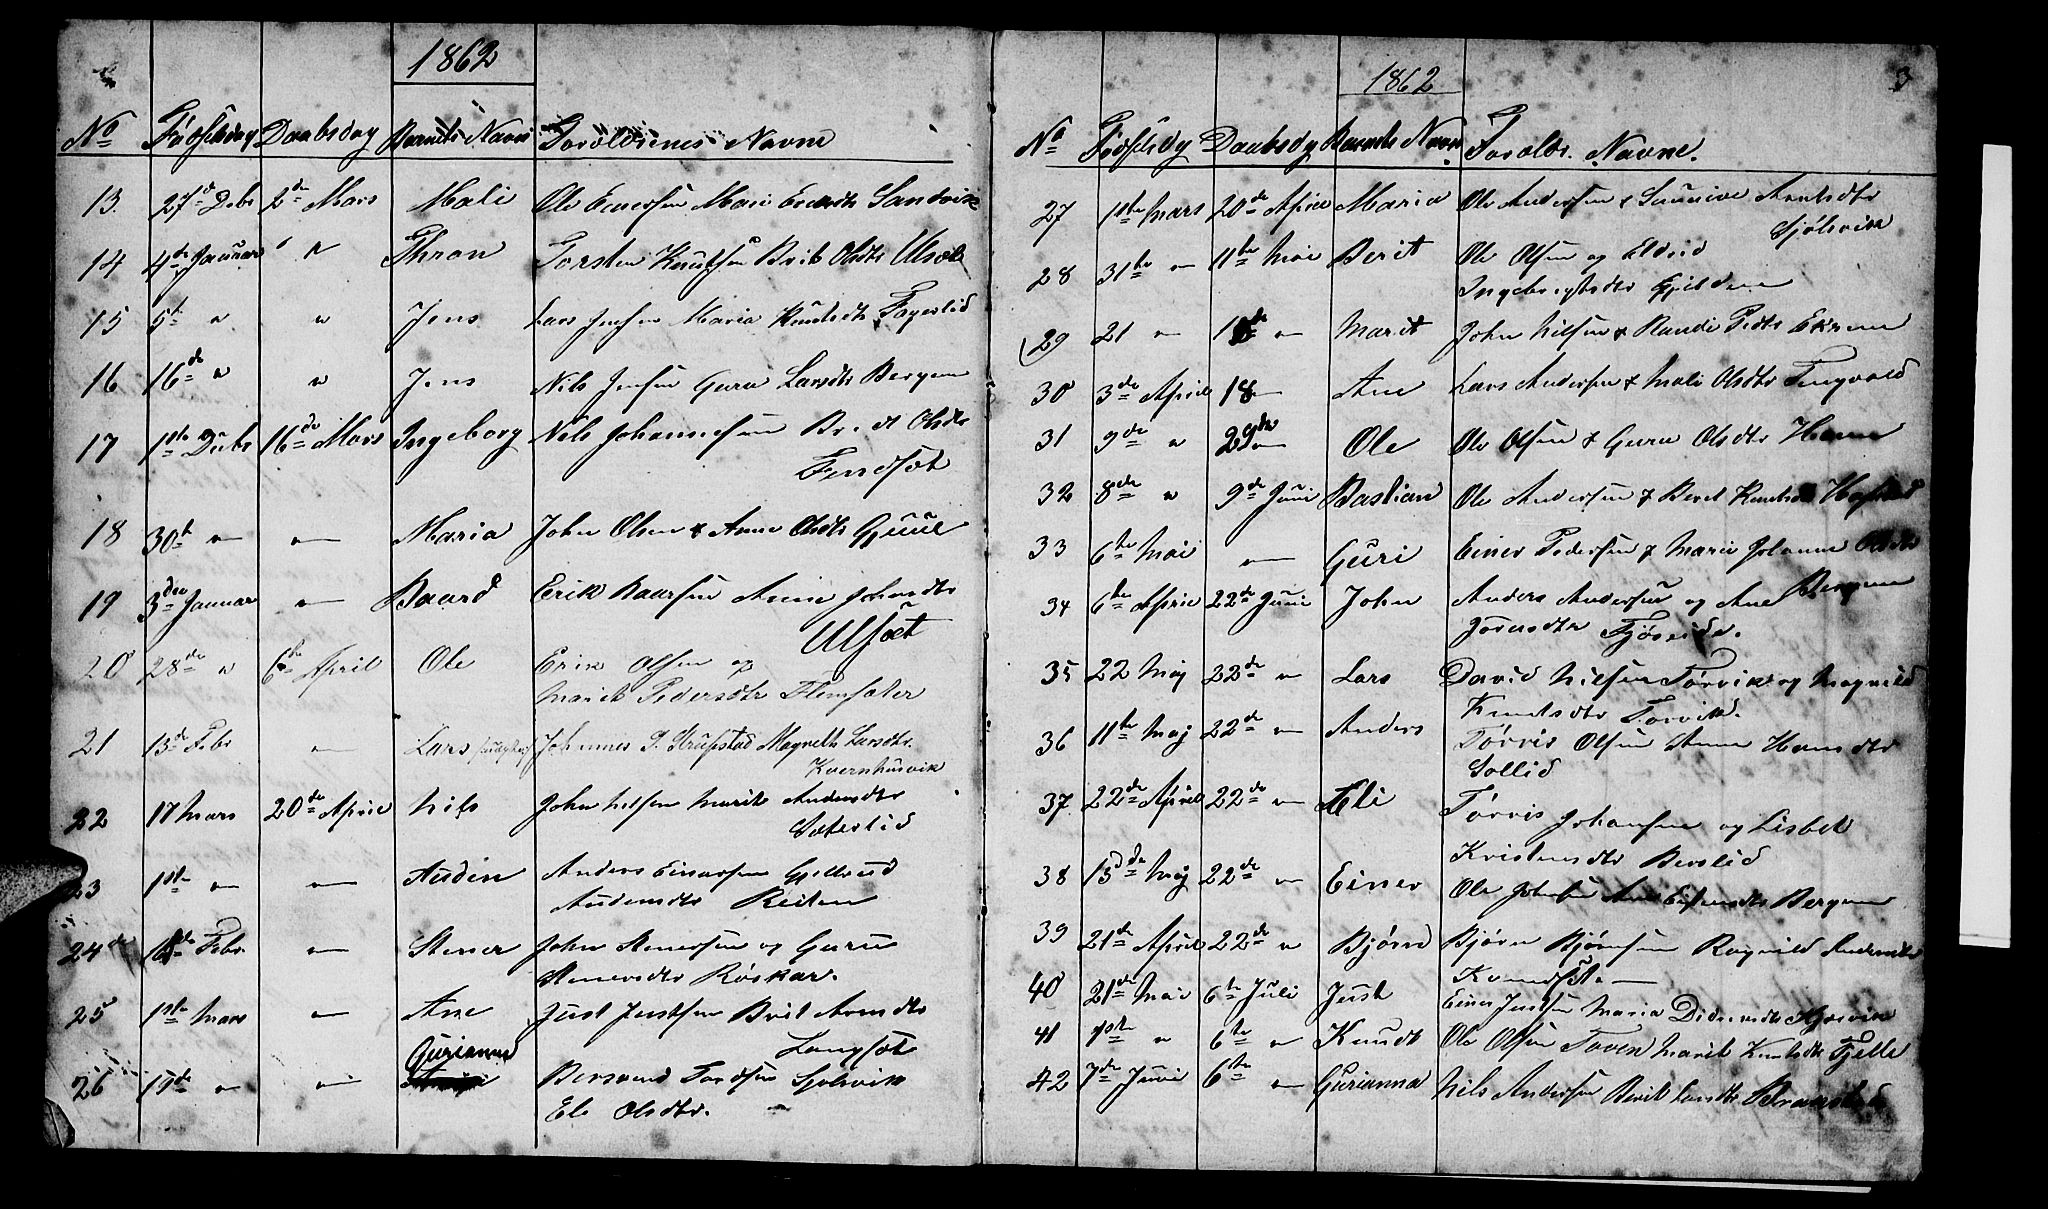 1862
No Fødselsdag Daabsdag Barnets Navn Forældrenes Navne
13. 27de Debr 2de Mars Mali Ole Einersen Mari Erikdtr Sandvik
14 4de Januar " Thron Torsten Knutsen Brit Olsdtr Ulsæt
15 5te " " Jens Lars Jensen Maria Knutsdtr Fagerlid
16 16de " " Jens Nils Jensen Guru Larsdtr Bergem
17 1ste Debr 16de Mars Ingeborg Nils Johannesen Brit Olsdtr
Fendsæt
18 30te — — Maria John Olsen & Anne Olsdtr Gjule
19 3die Januar — Baard Erik Baarsen Anne Johnsdtr
Ulsæt
20 28de " 6te April Ole Erik Olsen og
Marit Pedersdtr Flemsæter
21 13de Febr — Lars Johannes P. Strupstad Magnelh Larsdtr.
Kvernhusvik
22 17 Mars 20de April Nils John Nilsen Marit Andersdtr
Sæterlid
23 1ste — — Auden Anders Einarsen Gjellrud
Audensdtr Reiten
24 16de Febr. — Stener John Stenersen og Guru
Stenersdtr Røskar.
25 1ste Mars — Ane Just Justsen Brit Arntsdtr
Langsæt
Gurianna
26 19de — — Bersvend Tordsen Sjølsvik
Eli Olsdtr.
1862 3
No Fødselsdg Daabsdg Barnets Navn Forældr. Navne.
27 1ste Mars 20de April Maria Ole Andersen & Sunnive Arntsdtr
Sjølsvik
28 31te — 11te Mai Berit Ole Olsen og Eldrid
Ingebrigtsdtr Gjeldnes
29 21 — 18de — Marit John Nilsen & Randi Pedtr Eknem
30 3de April 18 — Ane Lars Andersen & Mali Olsdtr Tingvold
31 9de " 29de — Ole Ole Olsen & Guru Olsdtr Hanem
32 8de " 9de Juni Bastian Ole Andersen & Beret Knutsdtr Hafstad
33 6te Mai — Guri Einer Pedersen & Marie Johanne Olsdtr
Bergem
34 6te April 22de Juni John Anders Andersen og Ane
Joensdtr Fjøseide.
35 22 Maj 22de " Lars David Nilsen Torvik og Magnild
Knutsdtr Torvik.
36 11te Maj 22de — Anders Tørris Olsen Anne Hansdtr
Sollid
37 22de April 22de — Eli Tørris Johansen og Lisbet
Kristensdtr Berslid
38 13de Maj 22de — Einer Ole Johnsen Ane Eisensdtr Bergem
39 21de April 22de " Bjørn Bjørn Bjørnsen Ragnild Andersdtr
Kvendset. —
40 21de Mai 6te Juli Just Einer Justsen Maria Didriksdtr Hjelsvik
41 1ste " 6te " Knudt Ole Olsen Toven Marit Knutsdtr Fjelle
42 7de Juni 6te — Gurianna Nils Andersen Berit Larsdtr